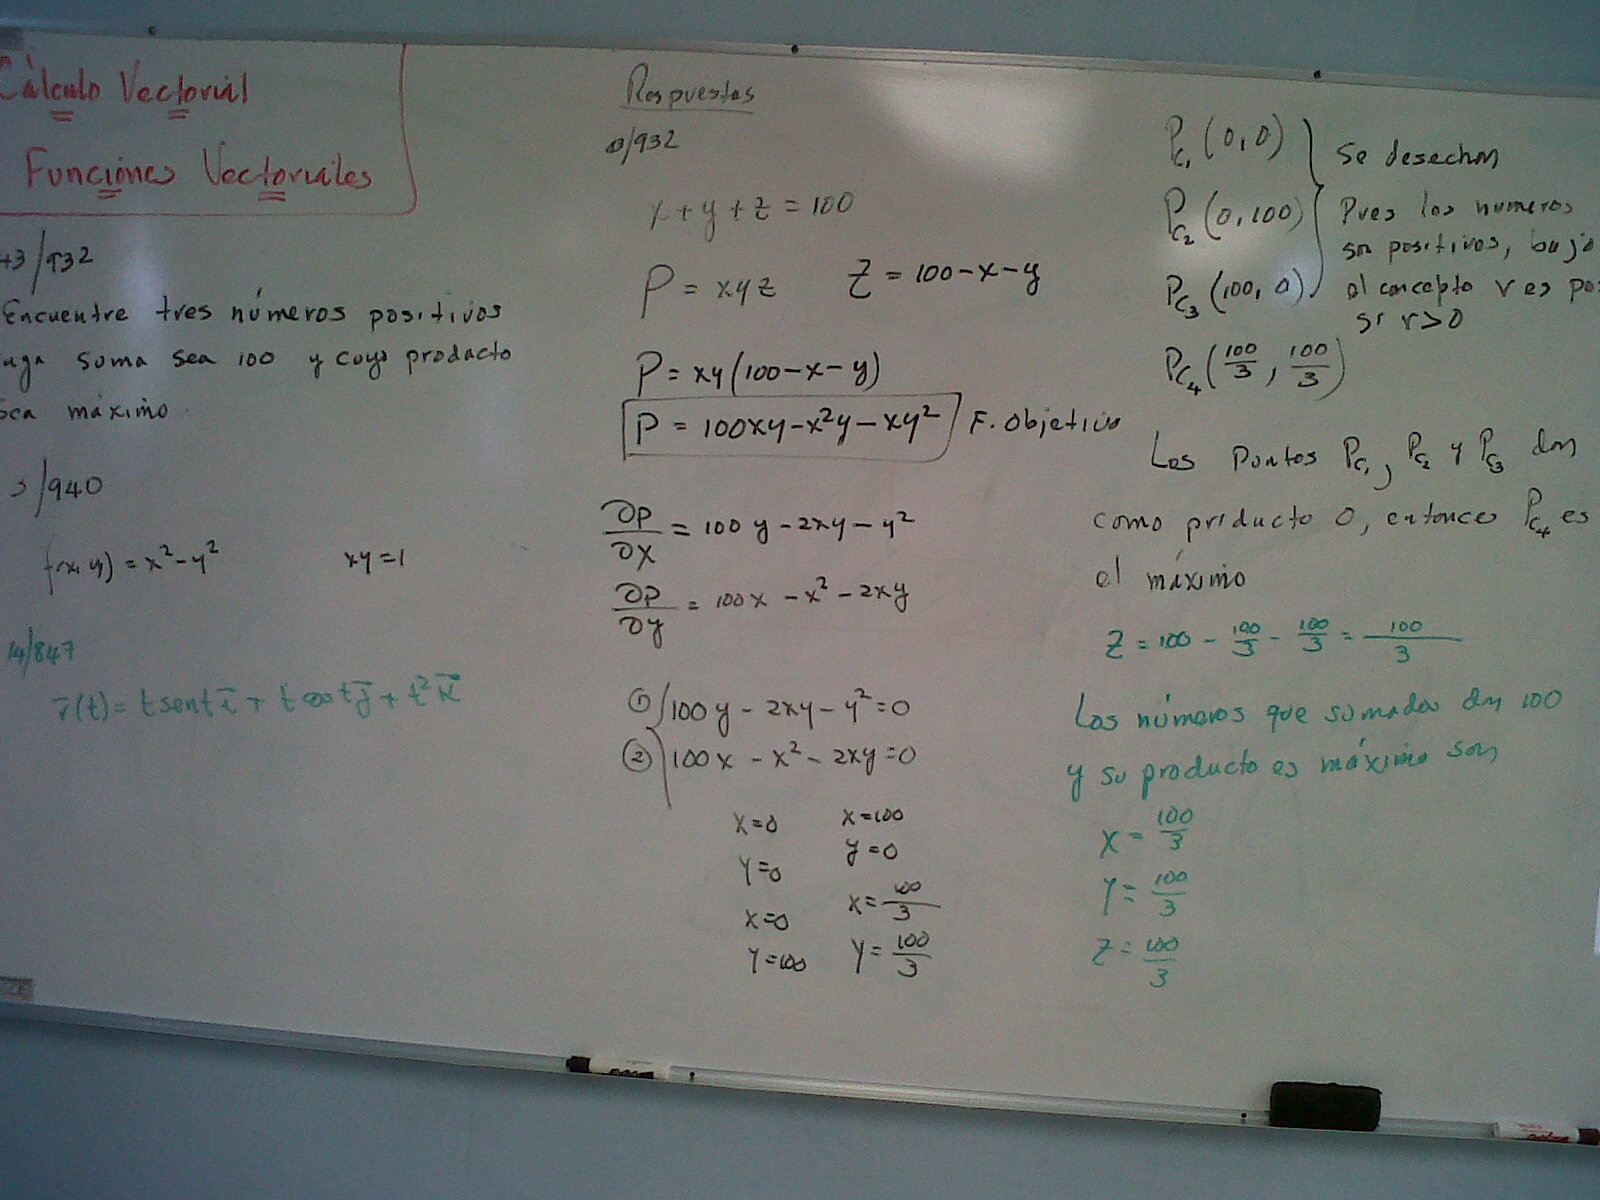 Cálculo Vectorial
Funciones Vectoriales
43/932
Encuentre tres números positivos
suma sea 100 y cuyo producto
sea máximo
3/940
f(x,y) = x² - y²    xy = 1
14/847
r̄(t) = t sent i̅ + t cos t j̅ + t² k̅
Respuestas
/932
x + y + z = 100
P = xyz    Z = 100 - x - y
P = xy(100 - x - y)
P = 100xy - x²y - xy²    F. Objetivo
∂P/∂x = 100y - 2xy - y²
∂P/∂y = 100x - x² - 2xy
① 100y - 2xy - y² = 0
② 100x - x² - 2xy = 0
x=0    x=100
y=0    y=0
x=0    x=100/3
y=100    y=100/3
Pc₁ (0,0)    Se desechan
Pc₂ (0,100)    Pues los numeros
son positivos, bajo
Pc₃ (100, 0)    el concepto r es
si r>0
Pc₄ (100/3, 100/3)
Los Puntos Pc₁, Pc₂ y Pc₃ dan
como producto 0, entonces Pc₄ es
el máximo
Z = 100 - 100/3 - 100/3 = 100/3
Los números que sumados dan 100
y su producto es máximo son
X = 100/3
Y = 100/3
Z = 100/3